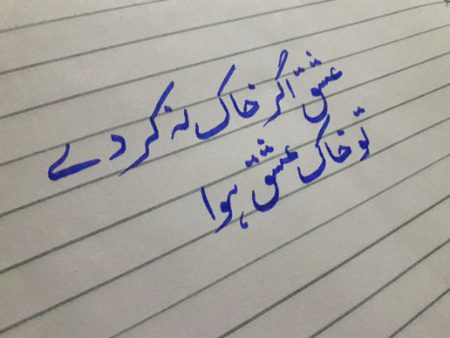 عشق اگر خاک نہ کر دے
تو خاک عشق ہوا